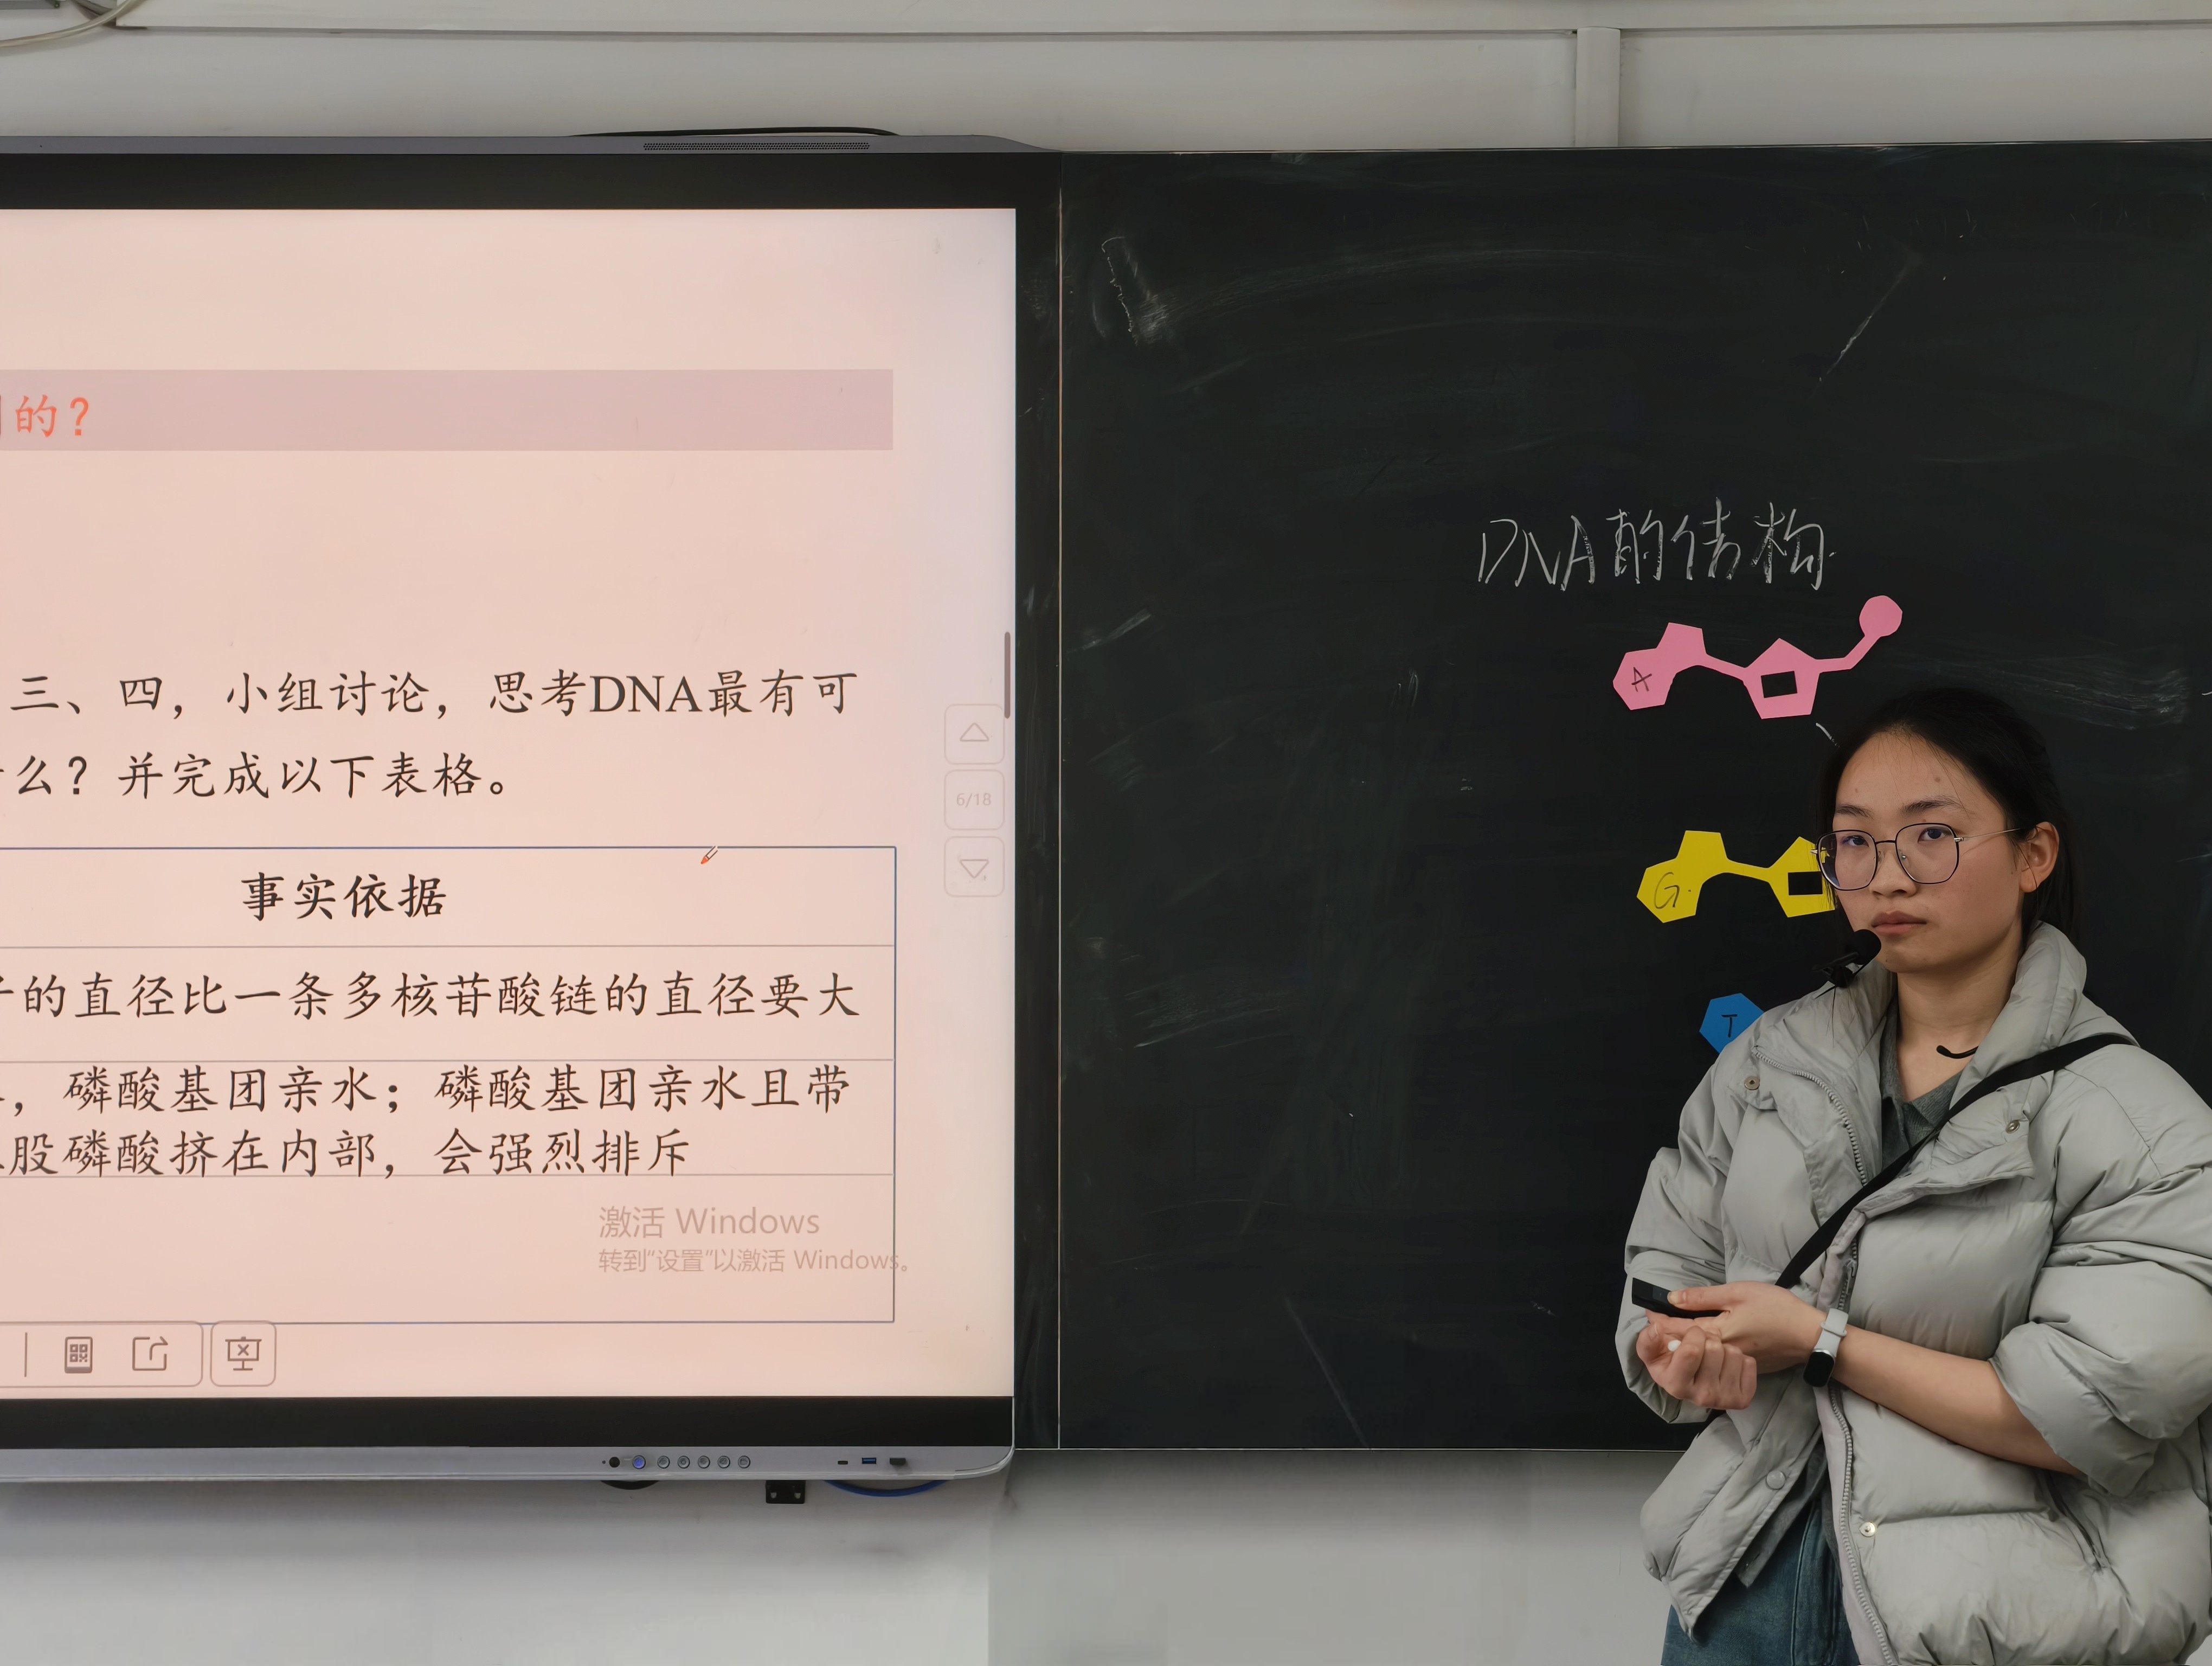 的？
三、四，小组讨论，思考DNA最有可
么？并完成以下表格。
6/18
事实依据
的直径比一条多核苷酸链的直径要大
，磷酸基团亲水；磷酸基团亲水且带
股磷酸挤在内部，会强烈排斥
激活 Windows
转到“设置”以激活 Windows。
DNA的结构
A
G
T